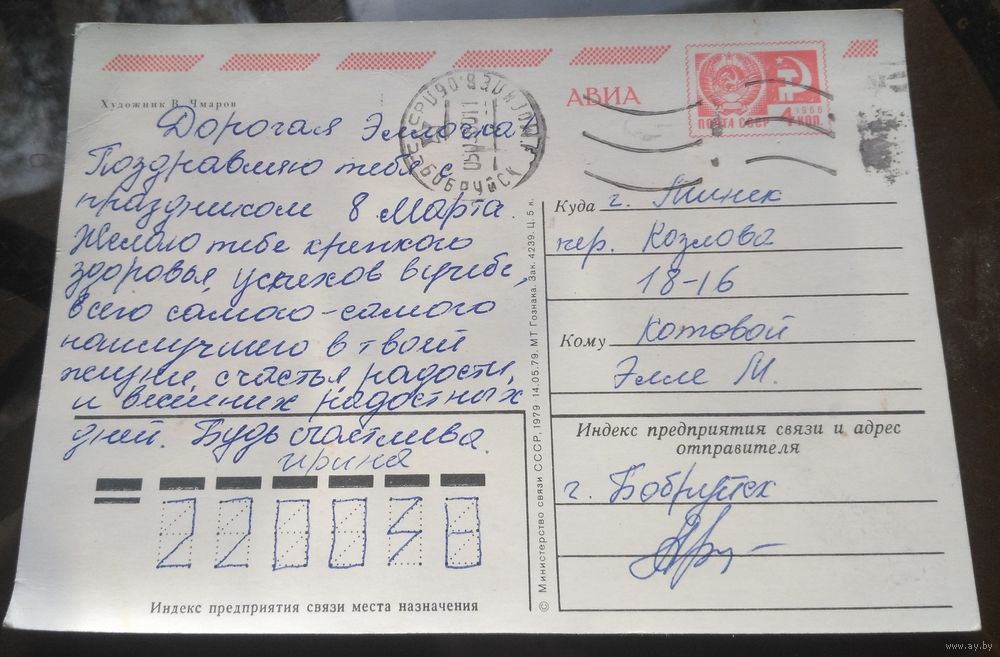 Художник В. Чмаров
АВИА
1966
ПОЧТА СССР 4 КОП.
БОБРУЙСК
Дорогая Эллочка
Поздравляю тебя с
праздником 8 Марта.
Желаю тебе крепкого
здоровья, успехов в учебе,
всего самого-самого
наилучшего в твоей
жизни, счастья, радости,
и весенних радостных
дней. Будь счастлива.
Ирина
Куда г. Минск
пер. Козлова
18-16
Кому Котовой
Элле М.
Индекс предприятия связи и адрес
отправителя
г. Бобруйск
Индекс предприятия связи места назначения
© Министерство связи СССР, 1979 14.05.79. МТ Гознака. Зак. 4239. Ц. 5 к.
www.ay.by